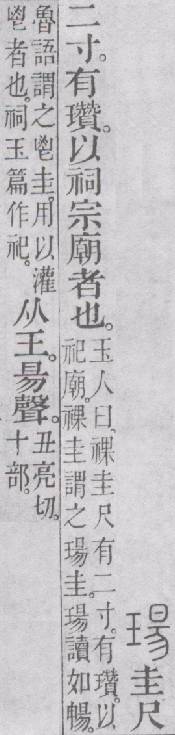 瑒圭尺
二寸。有瓚。以祠宗廟者也。
玉人曰、祼圭尺有二寸。有瓚。以
祀廟。祼圭謂之瑒圭。瑒讀如暢。
魯語謂之鬯圭。用以灌
鬯者也。祠玉篇作祀。
从王。昜聲。
丑亮切。
十部。